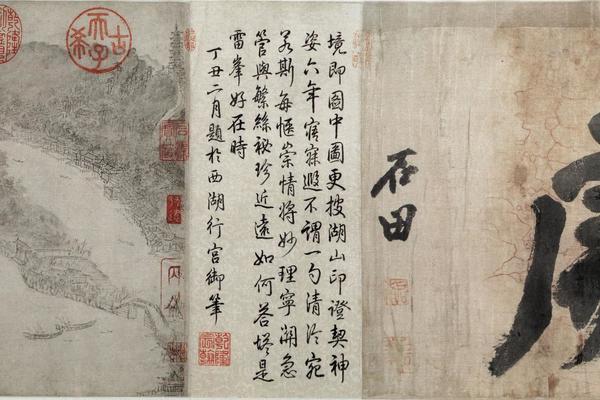 石田
境即圖中圖更披湖山印證契神
姿六年寤寐遐不謂一勺清泠宛
若斯每愜崇情將妙理寧關急
管與繁絲秘珍近遠如何答塔是
雷峯好在時
丁丑二月題於西湖行宮御筆
乾隆宸翰
古希天子